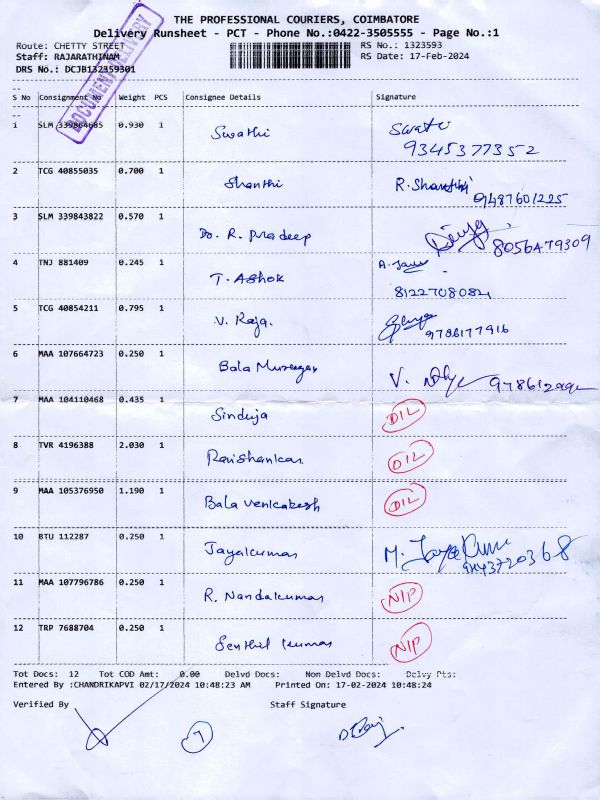 THE PROFESSIONAL COURIERS, COIMBATORE
Delivery Runsheet - PCT - Phone No.:0422-3505555 - Page No.:1
Route: CHETTY STREET RS No.: 1323593
Staff: RAJARATHINAM RS Date: 17-Feb-2024
DRS No.: DCJB132359301
DOCUMENT DELIVERY
S No Consignment No Weight PCS Consignee Details Signature
1 SLM 339864685 0.930 1 Swathi Swati
9345377352
2 TCG 40855035 0.700 1 Shanthi R. Shanthi 9487601225
3 SLM 339843822 0.570 1 Do. R. Pradeep 8056479309
4 TNJ 881409 0.245 1 T. Ashok A.
8122708082
5 TCG 40854211 0.795 1 V. Raja. 9786177916
6 MAA 107664723 0.250 1 Bala Murugan V.
7 MAA 104110468 0.435 1 Sinduja D/L
8 TVR 4196388 2.030 1 Ravishankar D/L
9 MAA 105376950 1.190 1 Bala Venkatesh D/L
10 BTU 112287 0.250 1 Jayakumar M. Jayakumar
11 MAA 107796786 0.250 1 R. Nandakumar N/P
12 TRP 7688704 0.250 1 Senthil kumar N/P
Tot Docs: 12 Tot COD Amt: 0.00 Delvd Docs: Non Delvd Docs: Delvy Pts:
Entered By :CHANDRIKAPVI 02/17/2024 10:48:23 AM Printed On: 17-02-2024 10:48:24
Verified By Staff Signature
7